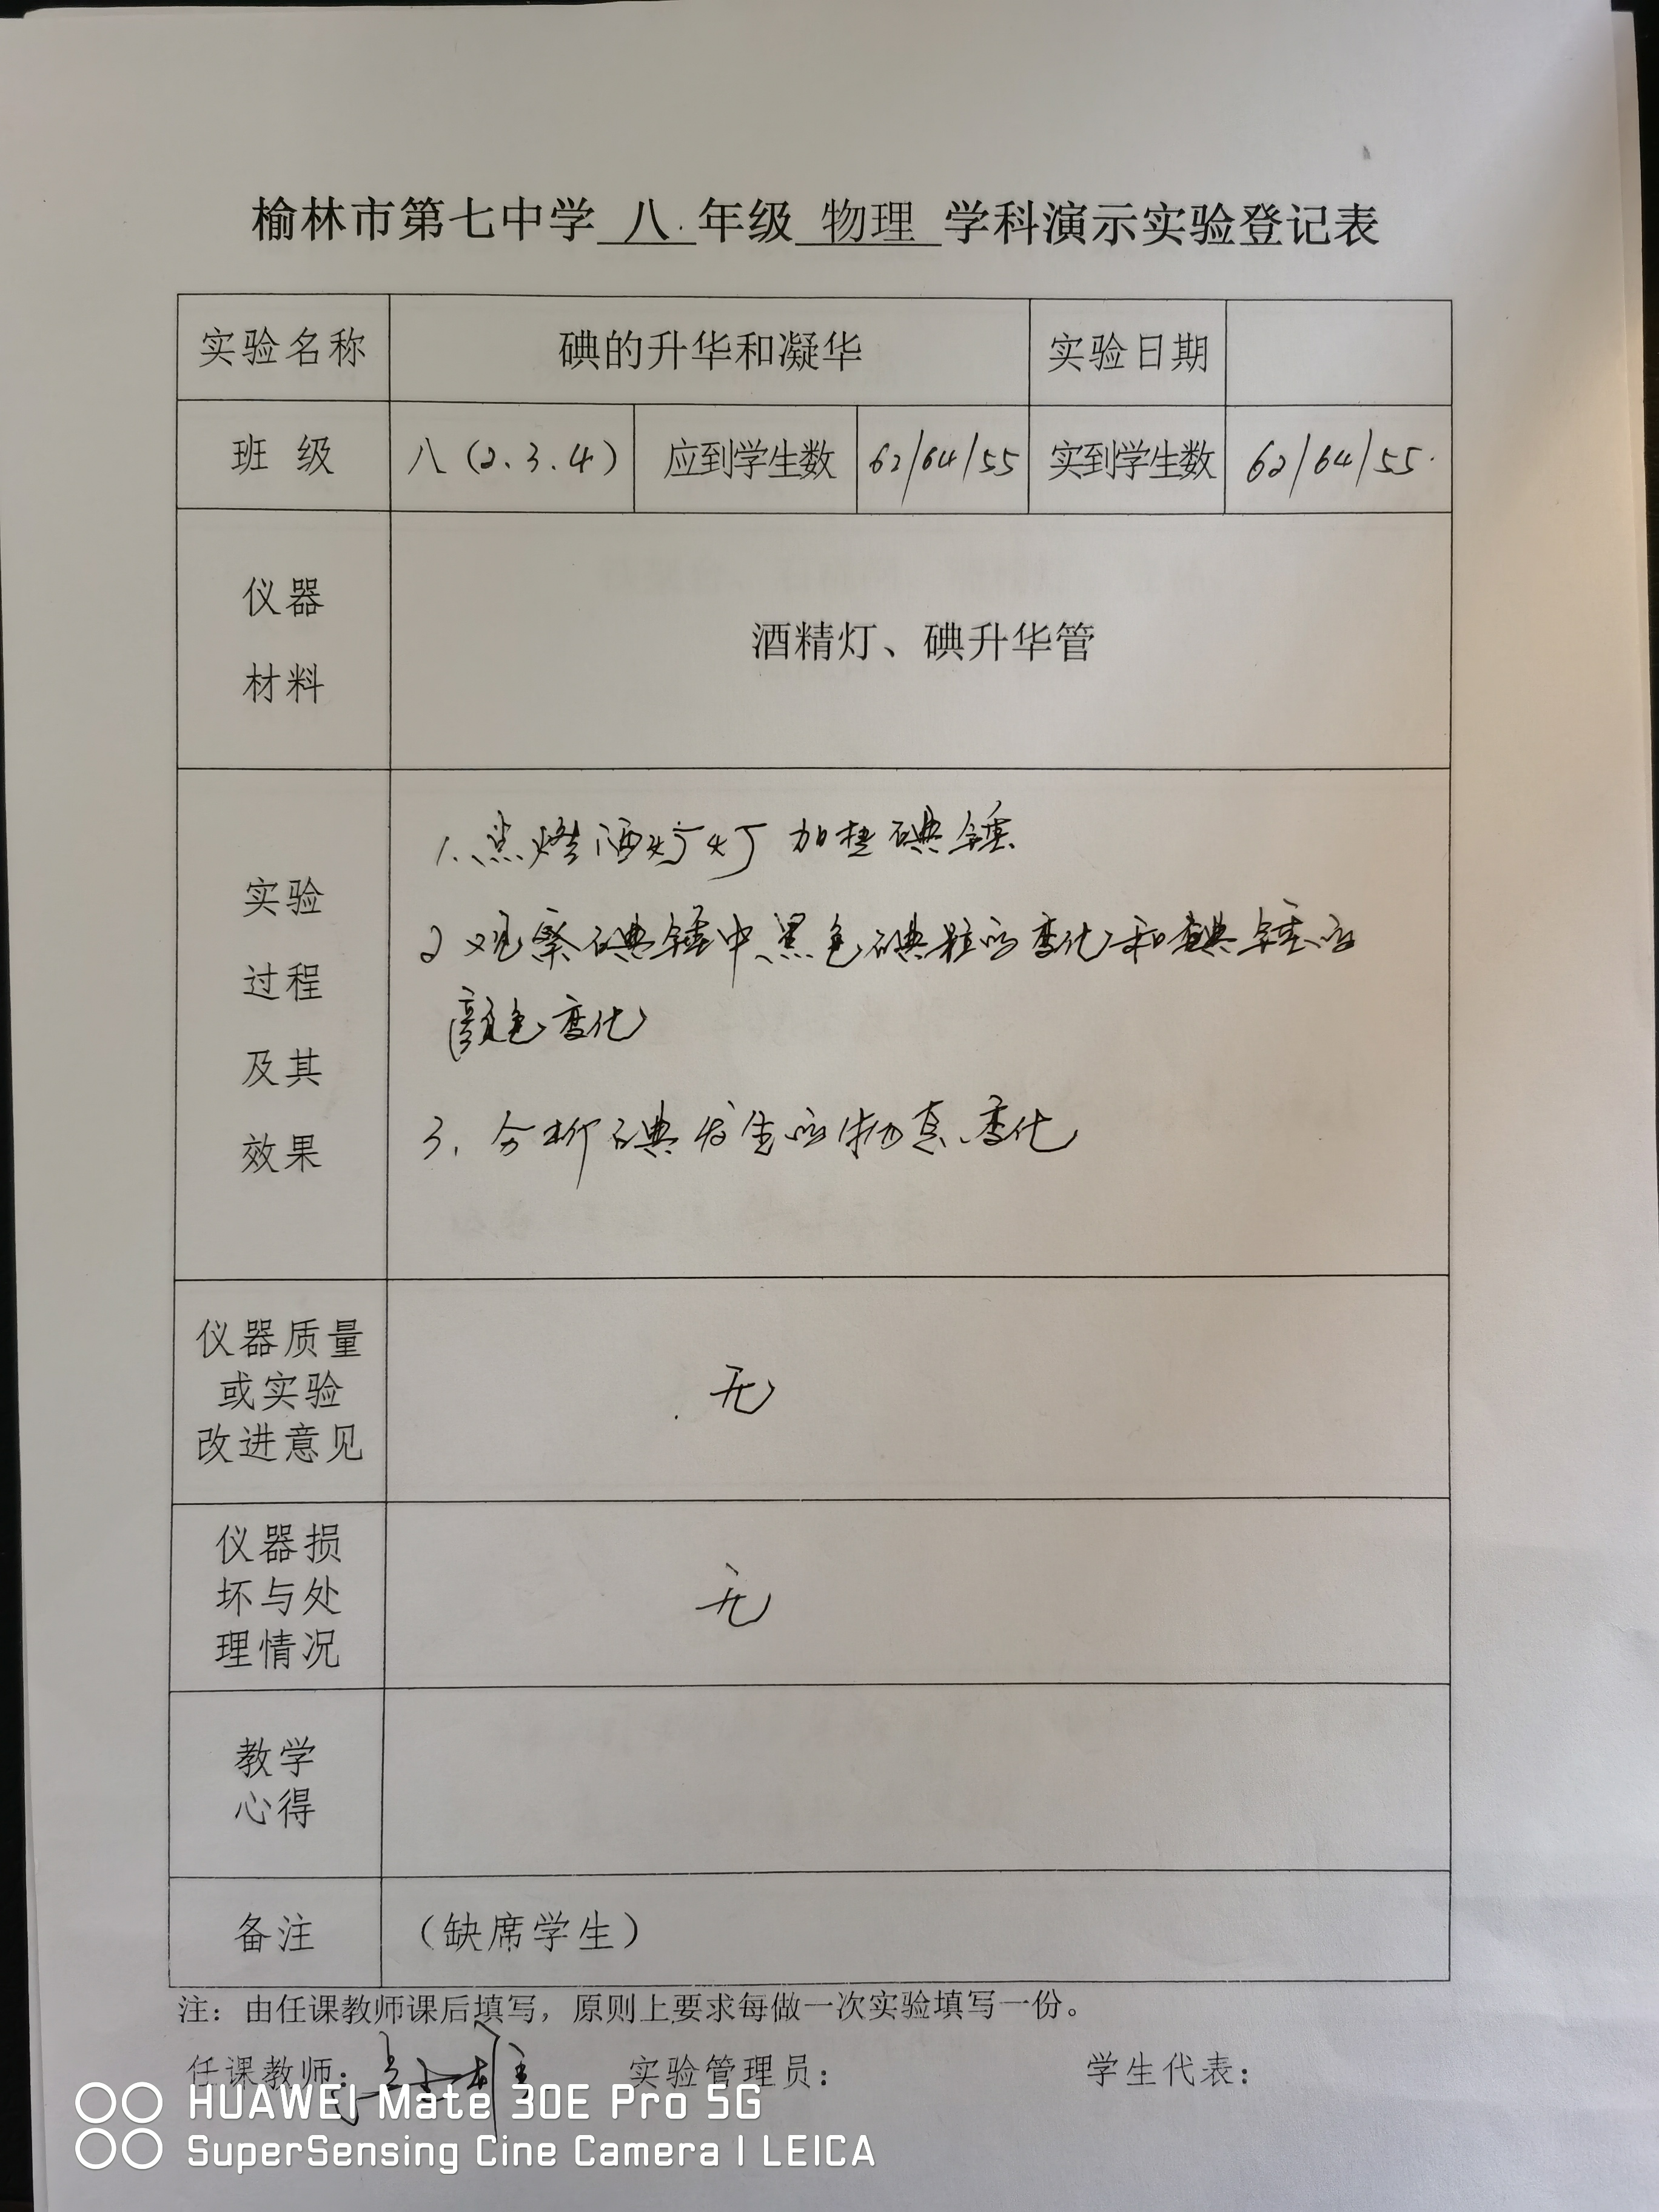 榆林市第七中学 八 年级 物理 学科演示实验登记表
实验名称 碘的升华和凝华 实验日期
班 级 八(2.3.4) 应到学生数 62/64/55 实到学生数 62/64/55
仪器
材料
酒精灯、碘升华管
实验
过程
及其
效果
1.点燃酒灯 加热碘锤
2 观察碘锤中黑色碘粒的变化和碘锤的
颜色变化
3. 分析碘发生的物态变化
仪器质量
或实验
改进意见
无
仪器损
坏与处
理情况
无
教学
心得
备注 (缺席学生)
注：由任课教师课后填写，原则上要求每做一次实验填写一份。
任课教师： 实验管理员： 学生代表：
HUAWEI Mate 30E Pro 5G
SuperSensing Cine Camera | LEICA